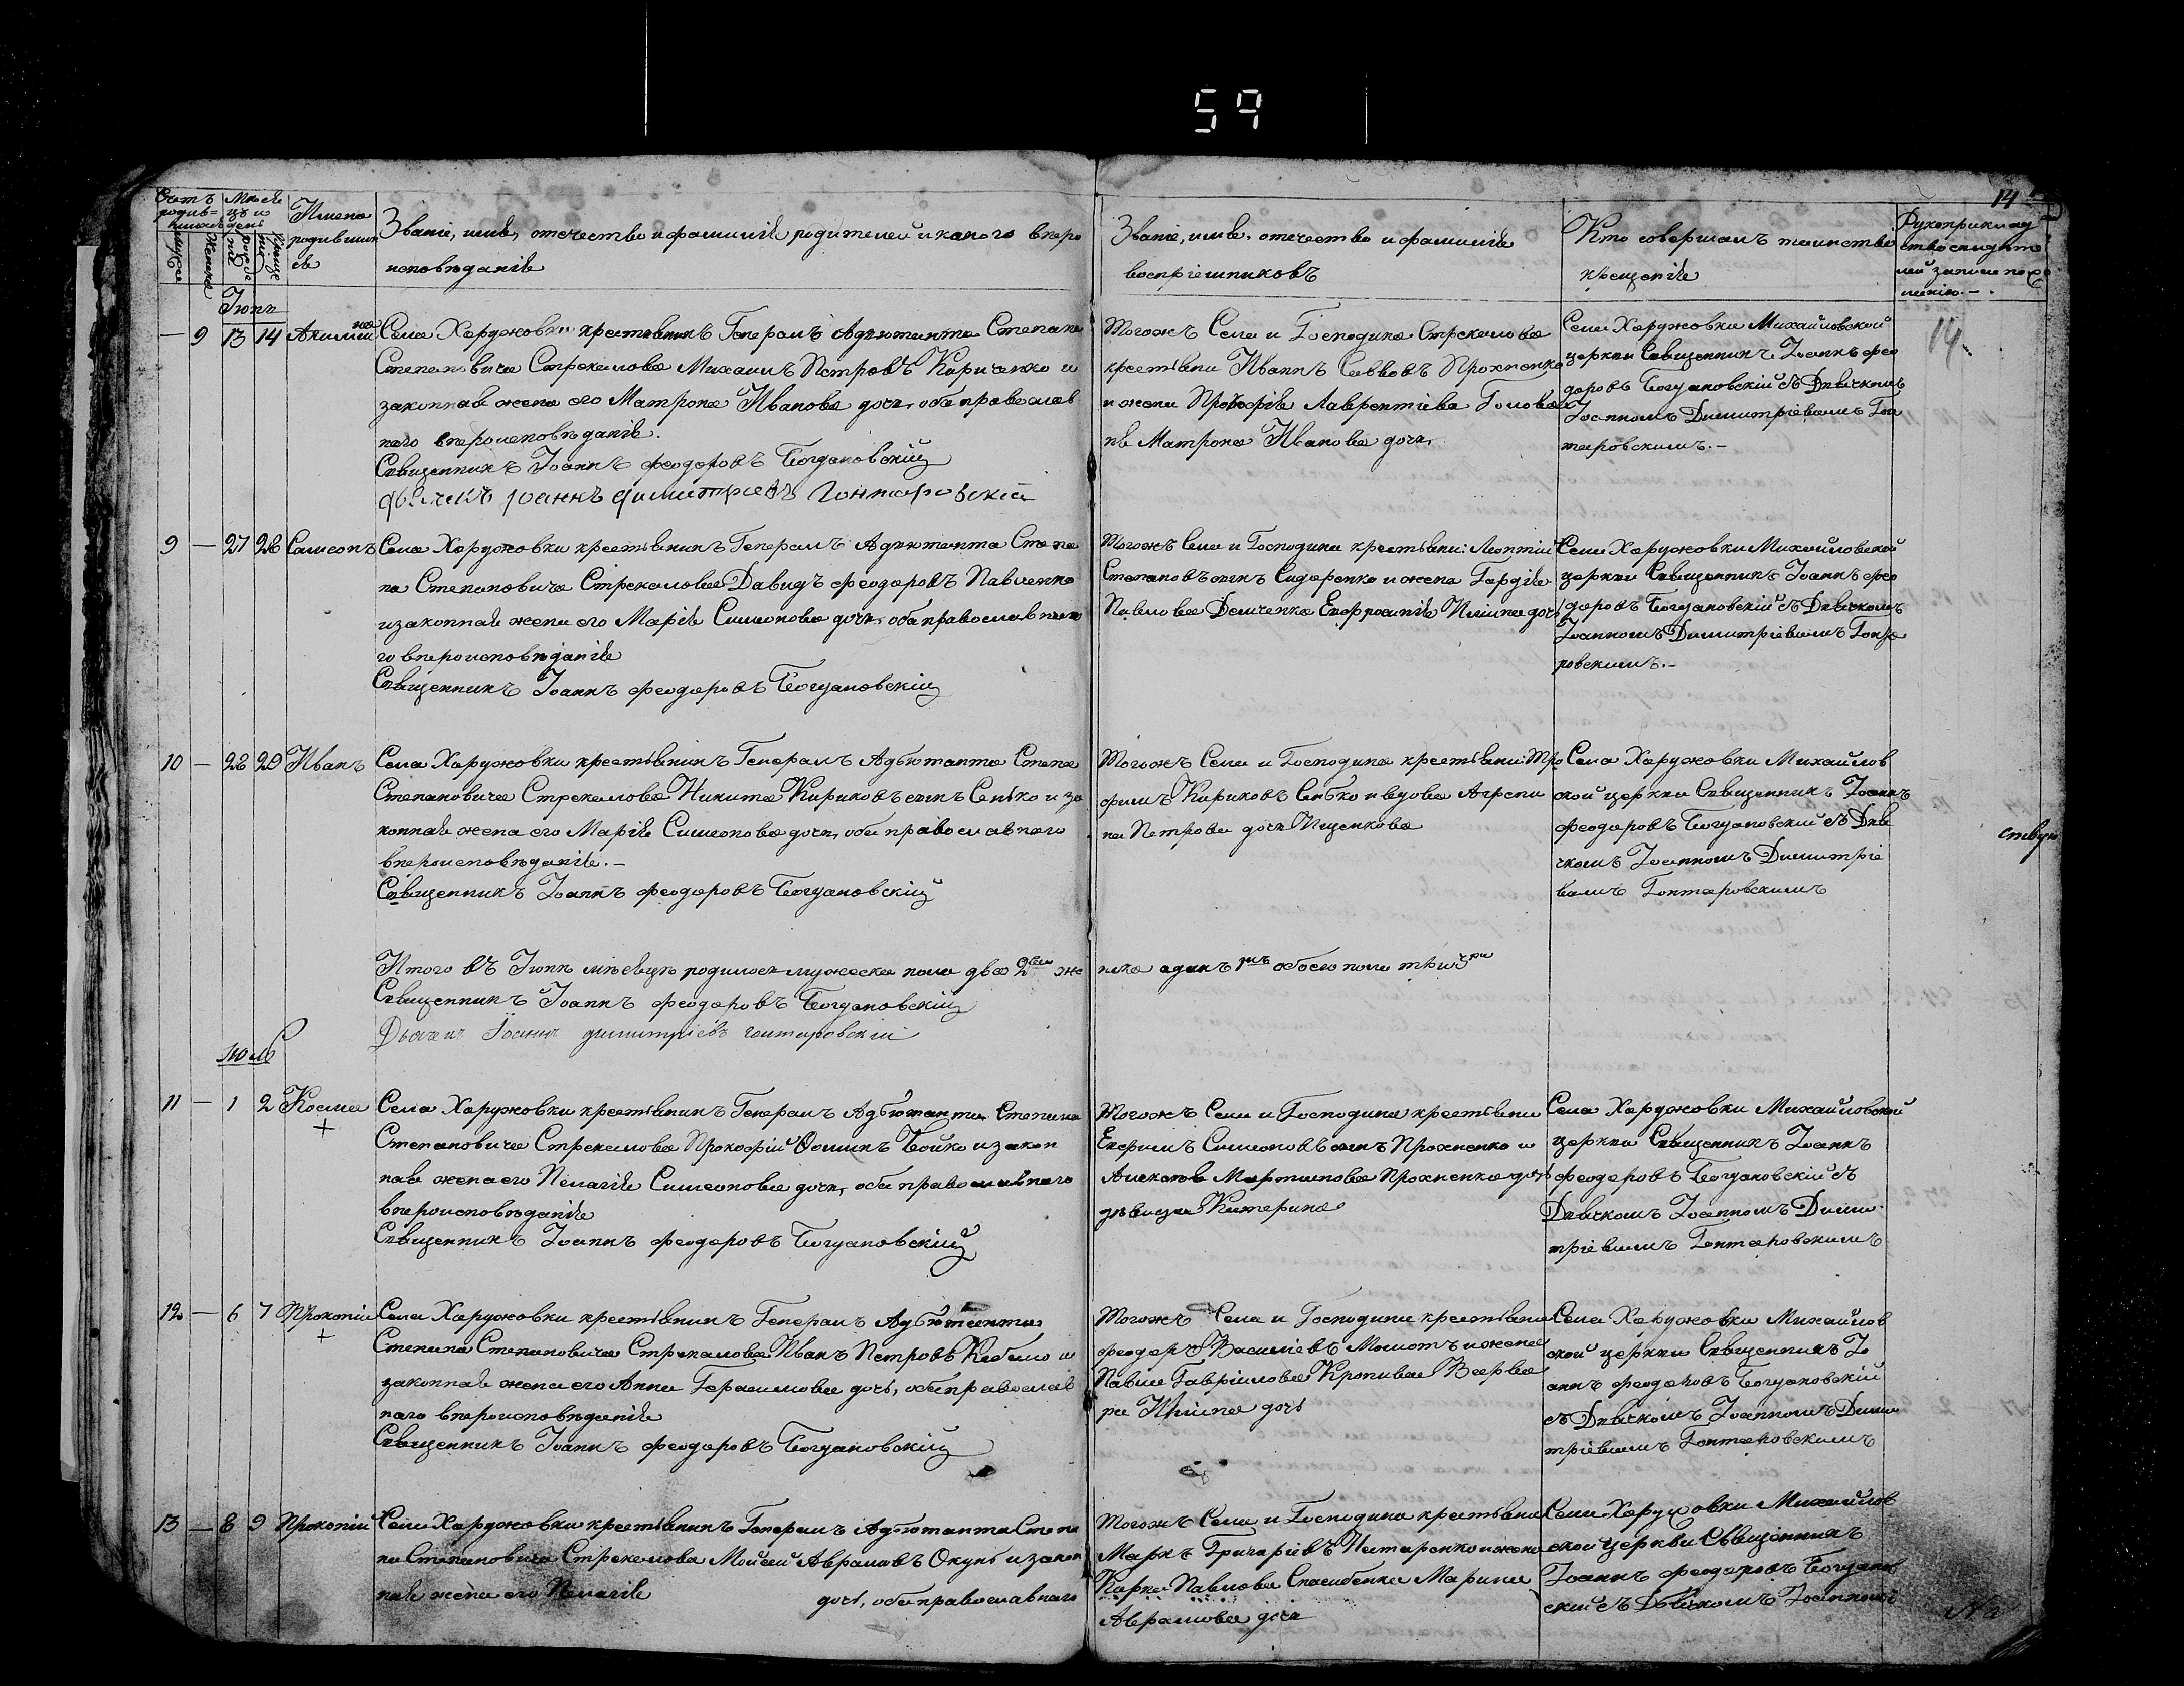 59
14
Счетъ родив=шихся
Мѣсяцъ и день
Имена родившихся
Званіе, имя, отечество и фамилія родителей и какого вѣро
исповѣданія
Званіе, имя, отечество и фамилія
воспріемниковъ
Кто совершалъ таинство
крещенія
Рукоприклад
ство свидѣте
лей записи по же
ланію.
Мужеска
Женска
рожденія
крещенія
Іюнь
— 9 13 14 Акилина
Села Харужовки крестьянинъ Генералъ Адъютанта Степана
Степановича Стрекалова Михаилъ Петровъ Кириченко и
законная жена его Матрона Иванова дочь, оба православ
наго вѣроисповѣданія.
Священникъ Іоаннъ Феодоровъ Богдановскій
Дьячекъ Іоаннъ Димитріевъ Гонтаровскій
Тогожъ Села и Господина Стрекалова
крестьяни Иваннъ Савовъ Прохненко
и жена Прокофія Лаврентіева Голова
нѣ Матрона Иванова дочь
Села Харужовки Михайловской
церкви Священникъ Іоаннъ Фео
доровъ Богдановскій съ Дьячкомъ
Іоанномъ Димитріевымъ Гон
таровскимъ.
14.
9 — 27 28 Самсонъ
Села Харужовки крестьянинъ Генералъ Адъютанта Степа
на Степановича Стрекалова Давидъ Феодоровъ Павленко
и законная жена его Марія Симеонова дочь, оба православна
го вѣроисповѣданія
Священникъ Іоаннъ Феодоровъ Богдановскій
Тогожъ Села и Господина крестьяни: Леонтій
Степановъ сынъ Сидоренко и жена Гордія
Павлова Демченка Евфросинія Ильина дочь
Села Харужовки Михайловской
церкви Священникъ Іоаннъ Фео
доровъ Богдановскій съ Дьячкомъ
Іоанномъ Димитріевымъ Гонта
ровскимъ.
10 — 28 29 Иванъ
Села Харужовки крестьянинъ Генералъ Адъютанта Степа
Степановича Стрекалова Никита Кириковъ сынъ Сенько и за
конная жена его Марія Симеонова дочь, оба православнаго
вѣроисповѣданія.
Священникъ Іоаннъ Феодоровъ Богдановскій
Тогожъ Села и Господина крестьяни: Тро
фимъ Кириковъ Сенько и вдова Агрепи
на Петрова дочь Ищенкова
Села Харужовки Михайлов
ской церкви Священникъ Іоаннъ
Феодоровъ Богдановскій съ Дья
чкомъ Іоанномъ Димитріе
вымъ Гонтаровскимъ
ствую
Итого въ Іюнѣ мѣсяцѣ родилось мужеска пола два 2 же
нска одинъ 1 обоего пола три 3
Священникъ Іоаннъ Феодоровъ Богдановскій
Дьячекъ Іоаннъ Димитріевъ Гонтаровскій
Июль
11 — 1 2 Косма
+
Села Харужовки крестьянинъ Генералъ Адъютанта Степана
Степановича Стрекалова Прокофій Фоминъ Бойко и закон
ная жена его Пелагія Симеонова дочь, оба православнаго
вѣроисповѣданія
Священникъ Іоаннъ Феодоровъ Богдановскій
Тогожъ Села и Господина крестьяни
Ефримъ Симеоновъ сынъ Прохненко и
Мартинова Прохненка дочь
дѣвица Катерина
Села Харужовки Михайловской
церкви Священникъ Іоаннъ
Феодоровъ Богдановскій съ
Дьячкомъ Іоанномъ Дими
тріевымъ Гонтаровскимъ
12 — 6 7 Прокопій
+
Села Харужовки крестьянинъ Генералъ Адъютанта
Степана Степановича Стрекалова Иванъ Петровъ Кобило и
законная жена его Анна Герасимова дочь, оба православ
наго вѣроисповѣданія
Священникъ Іоаннъ Феодоровъ Богдановскій
Тогожъ Села и Господина крестьяни
Феодоръ Васильевъ Молотъ и жена
Павла Гавріилова Кропива Варва
ра Ильина дочь
Села Харужовки Михайлов
ской церкви Священникъ Іо
аннъ Феодоровъ Богдановскій
съ Дьячкомъ Іоанномъ Дими
тріевымъ Гонтаровскимъ
13 — 8 9 Прокопій
Села Харужовки крестьянинъ Генералъ Адъютанта Степа
на Степановича Стрекалова Мойсей Аврамовъ Окунь и закон
ная жена его Пелагія дочь, оба православнаго
Тогожъ Села и Господина крестьяни
Маркъ Григоріевъ Нестеренко и жена
Карпа Павлова Спасибенка Марина
Аврамова дочь
Села Харужовки Михайлов
ской церкви Священникъ
Іоаннъ Феодоровъ Богданов
скій съ Дьячкомъ Іоанномъ